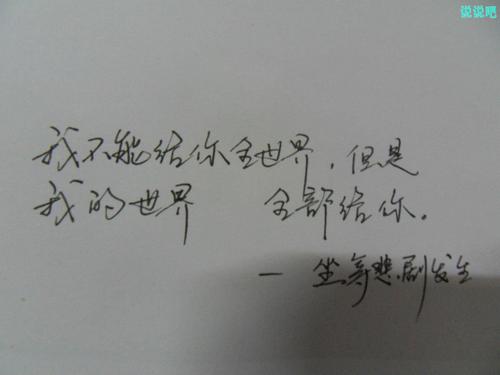 说说吧
我不能给你全世界，但是
我的世界 全部给你。
一坐等悲剧发生